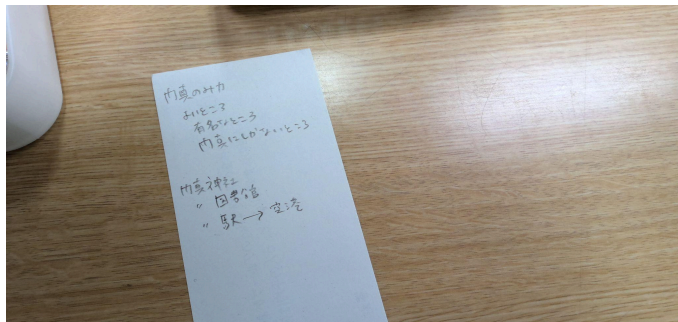 内真のみ力
よいところ
有名なところ
内真にしかないところ
内真神社
〃 図書館
〃 駅→空港